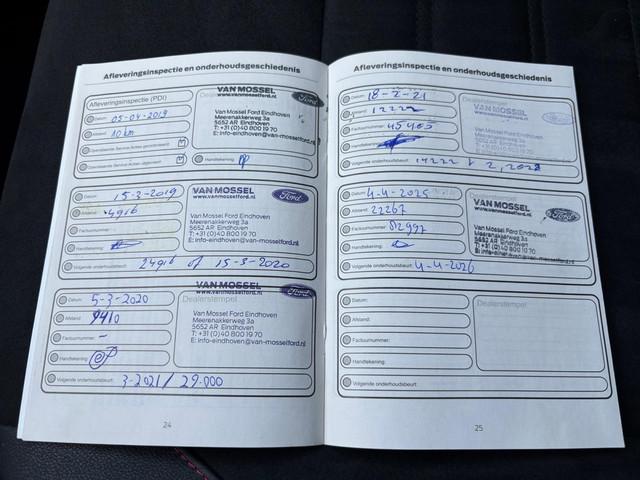 Afleveringsinspectie en onderhoudsgeschiedenis
Afleveringsinspectie (PDI)
Datum: 05-04-2019
Afstand: 10 km
Handtekening:
VAN MOSSEL
www.vanmosselford.nl
Ford
Van Mossel Ford Eindhoven
Meerenakkerweg 3a
5652 AR Eindhoven
T: +31 (0)40 800 19 70
E: info-eindhoven@van-mosselford.nl
Datum: 15-3-2019
Afstand: 4916
Factuurnummer:
Handtekening:
Volgende onderhoudsbeurt: 24916 of 15-3-2020
VAN MOSSEL
www.vanmosselford.nl
Ford
Van Mossel Ford Eindhoven
Meerenakkerweg 3a
5652 AR Eindhoven
T: +31 (0)40 800 19 70
E: info-eindhoven@van-mosselford.nl
Datum: 5-3-2020
Afstand: 9410
Factuurnummer: -
Handtekening:
Volgende onderhoudsbeurt: 3-2021 / 29.000
VAN MOSSEL
www.vanmosselford.nl
Ford
Dealerstempel
Van Mossel Ford Eindhoven
Meerenakkerweg 3a
5652 AR Eindhoven
T: +31 (0)40 800 19 70
E: info-eindhoven@van-mosselford.nl
24
Afleveringsinspectie en onderhoudsgeschiedenis
Datum: 18-2-21
Afstand: 12222
Factuurnummer:
Handtekening:
Volgende onderhoudsbeurt:
VAN MOSSEL
Datum: 4-4-2025
Afstand: 22267
Factuurnummer: 812997
Handtekening:
Volgende onderhoudsbeurt: 4-4-2026
VAN MOSSEL
www.vanmosselford.nl
Ford
Van Mossel Ford Eindhoven
Meerenakkerweg 3a
5652 AR Eindhoven
T: +31 (0)40 800 19 70
Datum:
Afstand:
Factuurnummer:
Handtekening:
Volgende onderhoudsbeurt:
Dealerstempel
25